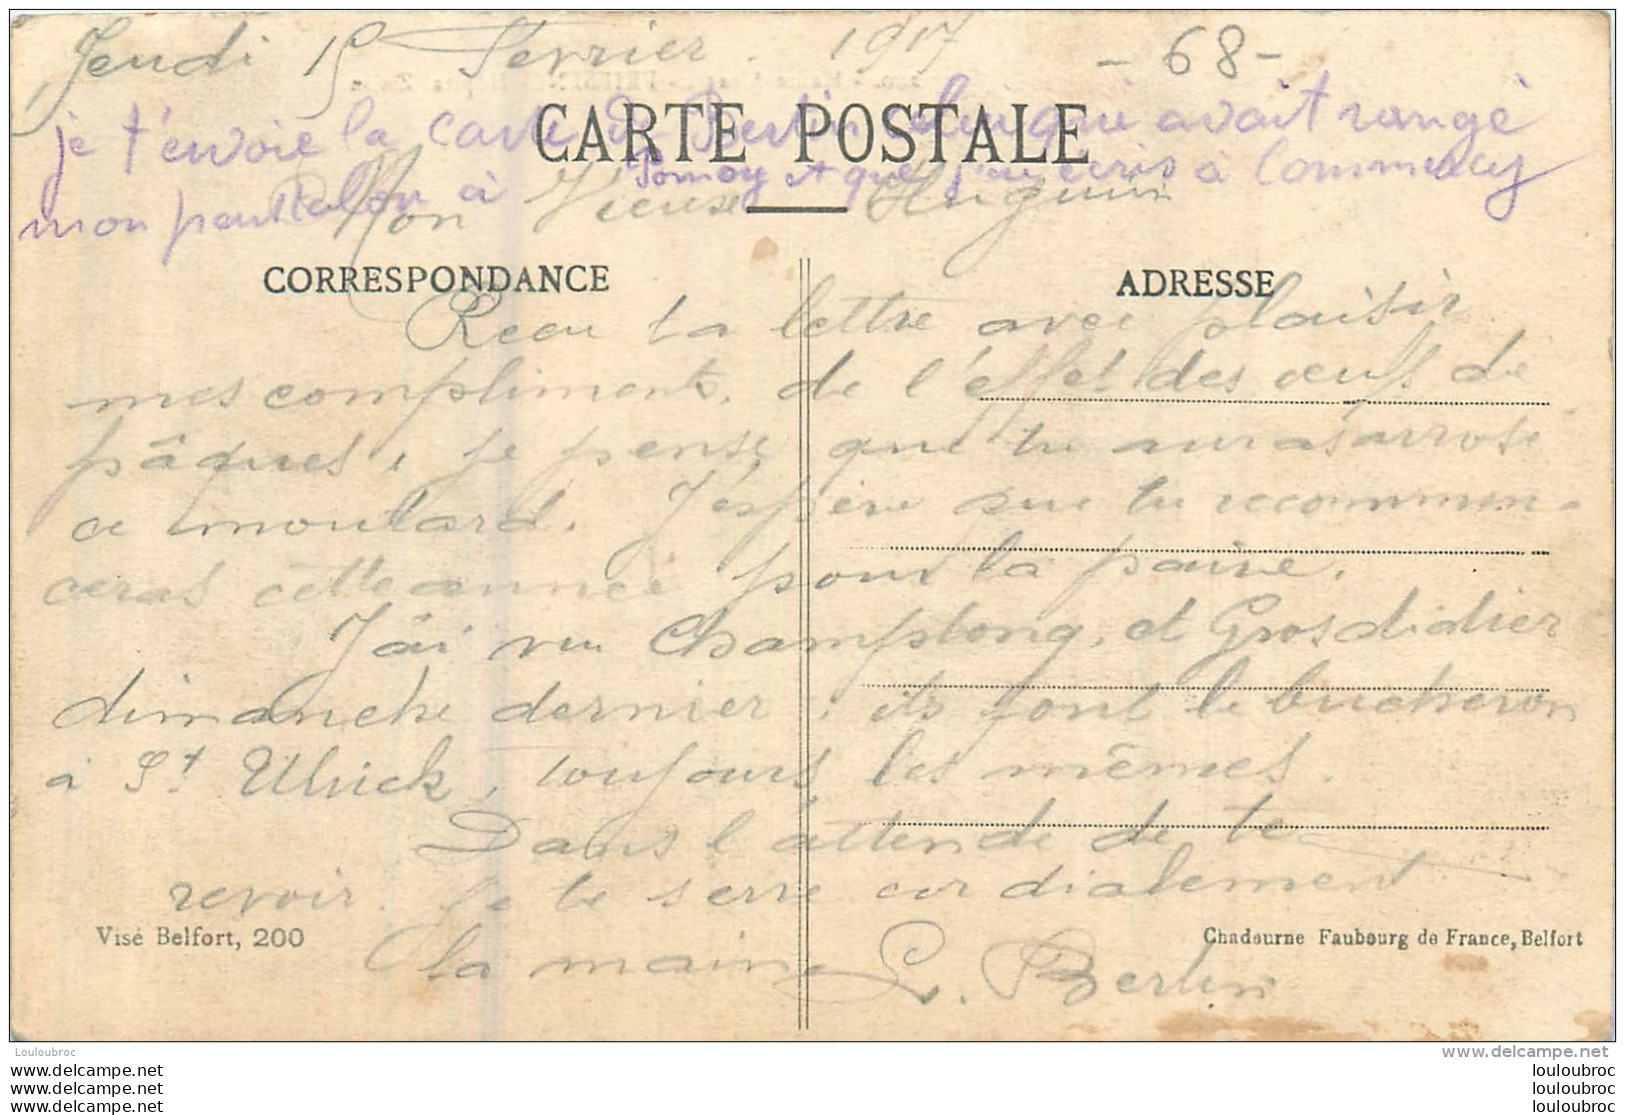 Jeudi 15 Fevrier 1917
- 68 -
je t'envoie la carte de Berlin celui qui avait rangé
mon pantalon à Pornoy et que j'ai écris à Commercy
CARTE POSTALE
Mon Vieux Huguin
CORRESPONDANCE
ADRESSE
Recu ta lettre avec plaisir
mes compliments, de l'effet des œufs de
pâques, je pense que tu auras arrosé
ce moutard. J'espère que tu recommen-
ceras cette année pour la paire.
J'ai vu Champlong, et Grosdidier
dimanche dernier; ils font le bucheron
à St Ulrick, toujours les mêmes.
Dans l'attende de te
revoir. Je te serre cordialement
la main L. Berlin
Visé Belfort, 200
Chadourne Faubourg de France, Belfort
Louloubroc
www.delcampe.net
louloubroc
louloubroc
louloubroc
louloubroc
louloubroc
louloubroc